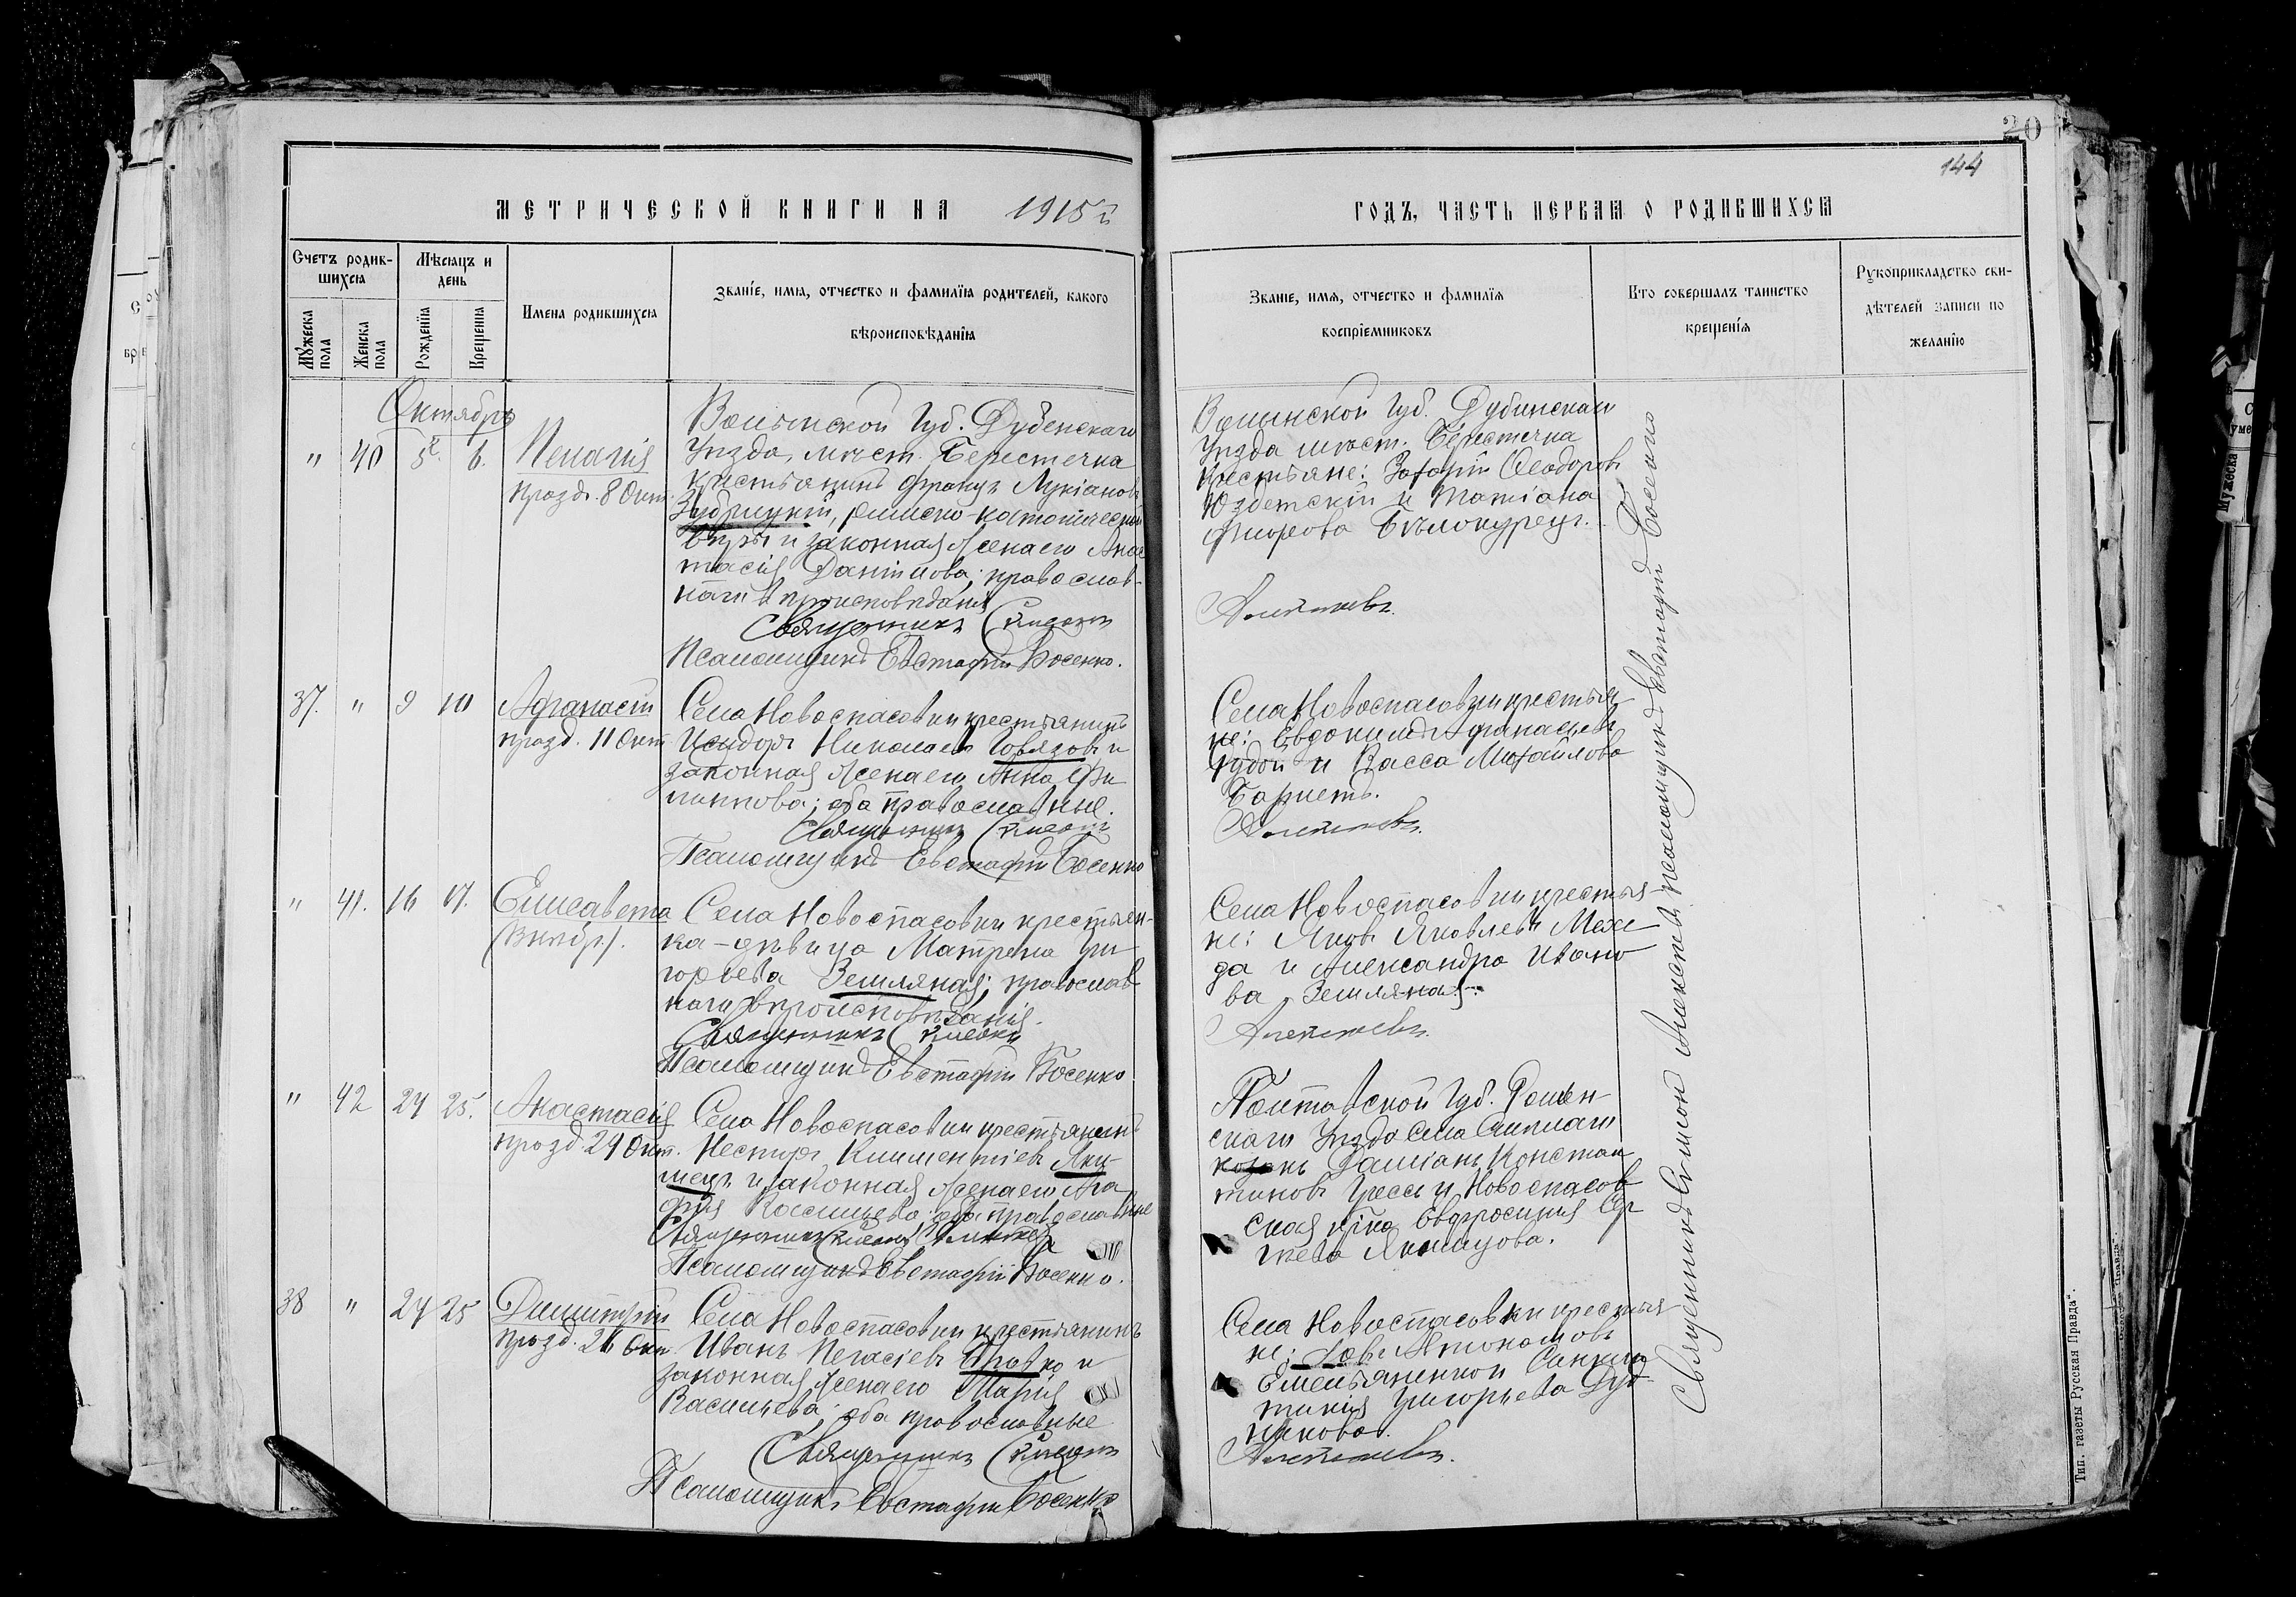 20
144
МЕТРИЧЕСКОЙ КНИГИ НА 1915 г.
ГОДЪ, ЧАСТЬ ПЕРВАЯ О РОДИВШИХСЯ
Счетъ родив-
шихся
Мѣсяцъ и
день
Мужеска
пола
Женска
пола
Рожденія
Крещенія
Имена родившихся
Званіе, имя, отчество и фамилія родителей, какого
вѣроисповѣданія
Званіе, имя, отчество и фамилія
воспріемниковъ
Кто совершалъ таинство
крещенія
Рукоприкладство сви-
дѣтелей записи по
желанію
Октябрь
" 40 5 6.
Пелагія
празд. 8 Окт.
Волынской Губ. Дубенскаго
Уѣзда, мѣст. Берестечка
крестьянинъ Францъ Лукіановъ
Зубрицкій, римско-католической
вѣры и законная жена его Анас
тасія Даніилова; православ-
наго вѣроисповѣданія
Священникъ
Псаломщикъ Евстафій Босенко.
Волынской Губ. Дубинскаго
Уѣзда мѣст. Берестечка
крестьяне: Захарій Феодоровъ
и Татіана
Алексѣевъ.
37. " 9 10
Афанасій
празд. 11 Окт
Села Новоспасовки крестьянинъ
Исидоръ Николаевъ Говязовъ и
законная жена его Анна Фи
липпова; оба православные.
Священникъ
Псаломщикъ Евстафій Босенко
Села Новоспасовки крестья-
не: Евдокимъ Афанасьевъ
Гудой и Васса Михайлова
Алексѣевъ.
" 41. 16 17.
Елисавета
(внѣбр.).
Села Новоспасовки крестьян-
ка-дѣвица Матрена Гри
горьева Земляная; православ
наго вѣроисповѣданія.
Священникъ
Псаломщикъ Евстафій Босенко
Села Новоспасовки крестья-
не: Яковъ Яковлевъ
да и Александра Ивано
ва Земляная.
Алексѣевъ.
" 42 24 25.
Анастасія
празд. 29 Окт.
Села Новоспасовки крестьянинъ
Несторъ Климентіевъ Яки-
мецъ и законная жена его Ага
фія Васильева; оба православные
Священникъ
Псаломщикъ Евстафій Босенко.
Полтавской Губ. Ромен-
скаго Уѣзда села
Даміанъ Констан
тиновъ и Новоспасов
ская кр-ка Евфросинія Сер
гѣева Якимцова.
38 " 24 25
Димитрій
празд. 26 Окт
Села Новоспасовки крестьянинъ
Иванъ Пегасіевъ и
законная жена его Марія
Васильева; оба православные
Священникъ
Псаломщикъ Евстафій Босенко
Села Новоспасовки крестья
не:
Емельяненко и Синкли
тикія Григорьева Дуд
никова.
Алексѣевъ.
Священникъ Симеонъ Алексѣевъ псаломщикъ Евстафій Босенко
Тип. газеты Русская Правда".